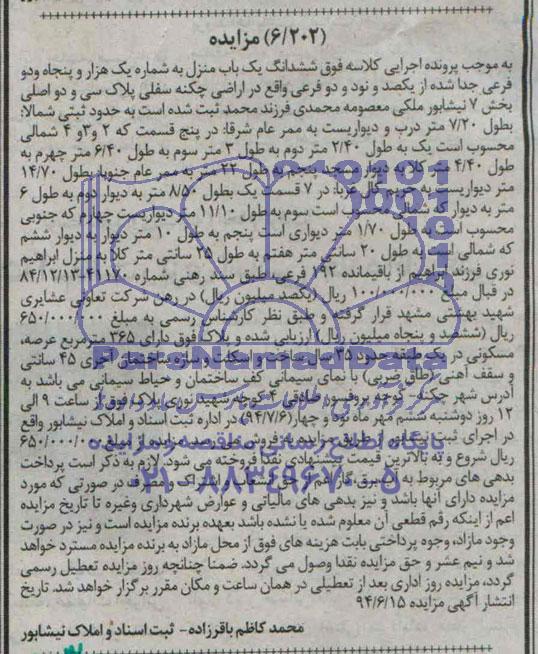 (۶/۲۰۲) مزایده
به موجب پرونده اجرایی کلاسه فوق ششدانگ یک باب منزل به شماره یک هزار و پنجاه ودو
فرعی جدا شده از یکصد و نود و دو فرعی واقع در اراضی چکنه سفلی پلاک سی و دو اصلی
بخش ۷ نیشابور ملکی معصومه محمدی فرزند محمد ثبت شده است به حدود ثبتی شمالا:
بطول ۷/۲۰ متر درب و دیواریست به ممر عام شرقا: در پنج قسمت که ۲ و۳و ۴ شمالی
محسوب است یک به طول ۲/۴۰ متر دوم به طول ۳ متر سوم به طول ۶/۴۰ متر چهرم به
طول ۴/۴۰ متر کلا به دیوار مسجد پنجم به طول ۲۳ متر به ممر عام جنوبا: بطول ۱۴/۷۰
متر دیواریست به حریم کال غربا: در ۷ قسمت یک بطول ۸/۵۰ متر به دیوار دوم به طول ۶
متر به دیوار که شمالی محسوب است سوم به طول ۱۱/۱۰ متر دیواریست چهارم که جنوبی
محسوب است به طول ۱/۷۰ متر دیواری است پنجم به طول ۱۰ متر دیوار به دیوار ششم
که شمالی است به طول ۲۰ سانتی متر هفتم به طول ۲۵ سانتی متر کلا به منزل ابراهیم
نوری فرزند ابراهیم از باقیمانده ۱۹۲ فرعی طبق سند رهنی شماره ۴۱۱۷۰-۸۴/۱۲/۱۳
در قبال مبلغ ۱۰۰/۰۰۰/۰۰۰ ریال (یکصد میلیون ریال) در رهن شرکت تعاونی عشایری
شهید بهشتی مشهد قرار گرفته و طبق نظر کارشناس رسمی به مبلغ ۶۵۰/۰۰۰/۰۰۰
ریال (ششصد و پنجاه میلیون ریال) ارزیابی شده و پلاک فوق دارای ۳۶۵ مترمربع عرصه،
مسکونی در یک طبقه حدود ۳۵ سال ساخت و اسکلت و سازه ساختمان آجری ۴۵ سانتی
و سقف آهنی (طاق ضربی) با نمای سیمانی کف ساختمان و حیاط سیمانی می باشد به
آدرس شهر چکنه- کوچه پروفسور صادقی ۴ کوچه شهید نوری پلاک فوق از ساعت ۹ الی
۱۲ روز دوشنبه ششم مهر ماه نود و چهار(۹۴/۷/۶) در اداره ثبت اسناد و املاک نیشابور واقع
در اجرای ثبت نیشابور از طریق مزایده به فروش می رسد مزایده از مبلغ ۶۵۰/۰۰۰/۰۰۰
ریال شروع و به بالاترین قیمت پیشنهادی نقدا فروخته می شود، لازم به ذکر است پرداخت
بدهی های مربوط به آب برق گاز اعم از حق انشعاب و اشتراک و مصرف در صورتی که مورد
مزایده دارای آنها باشد و نیز بدهی های مالیاتی و عوارض شهرداری وغیره تا تاریخ مزایده
اعم از اینکه رقم قطعی آن معلوم شده یا نشده باشد بعهده برنده مزایده است و نیز در صورت
وجود مازاد، وجوه پرداختی بابت هزینه های فوق از محل مازاد به برنده مزایده مسترد خواهد
شد و نیم عشر و حق مزایده نقدا وصول می گردد. ضمنا چنانچه روز مزایده تعطیل رسمی
گردد، مزایده روز اداری بعد از تعطیلی در همان ساعت و مکان مقرر برگزار خواهد شد. تاریخ
انتشار آگهی مزایده ۹۴/۶/۱۵
محمد کاظم باقرزاده- ثبت اسناد و املاک نیشابور
ParsNamadData
پایگاه اطلاع رسانی مناقصه و مزایده
۰۲۱-۸۸۳۴۹۶۷۰-۵